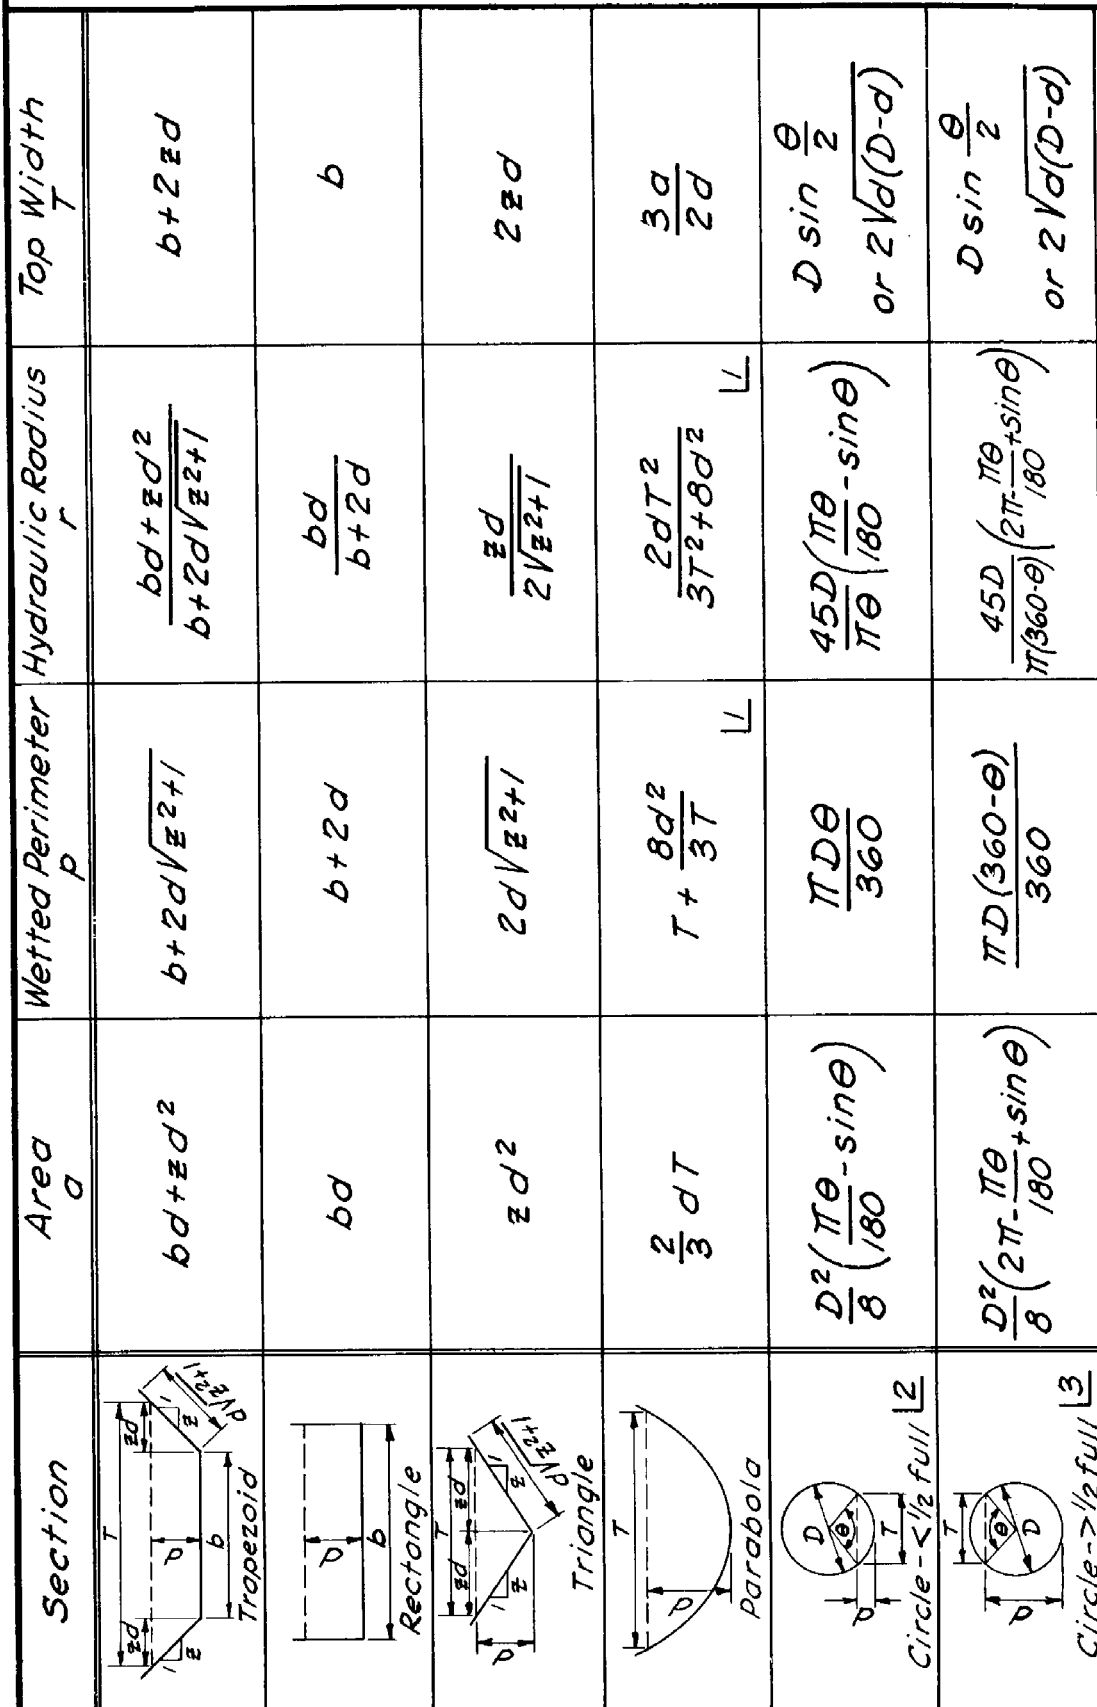 Section
Area
a
Wetted Perimeter
p
Hydraulic Radius
r
Top Width
T
T
zd
zd
d
b
1
z
1
z
d√z²+1
Trapezoid
bd+zd²
b+2d√z²+1
bd+zd² / b+2d√z²+1
b+2zd
d
b
Rectangle
bd
b+2d
bd / b+2d
b
T
zd
zd
d
1
z
1
z
d√z²+1
Triangle
zd²
2d√z²+1
zd / 2√z²+1
2zd
T
d
Parabola
2/3 dT
T + 8d²/3T 1
2dT² / 3T²+8d² 1
3a/2d
D
θ
T
d
Circle-<1/2 full 2
D²/8 (πθ/180 - sinθ)
πDθ/360
45D/πθ (πθ/180 - sinθ)
D sin θ/2
or 2√d(D-d)
T
θ
D
d
Circle->1/2 full 3
D²/8 (2π - πθ/180 + sinθ)
πD(360-θ)/360
45D/π(360-θ) (2π - πθ/180 + sinθ)
D sin θ/2
or 2√d(D-d)